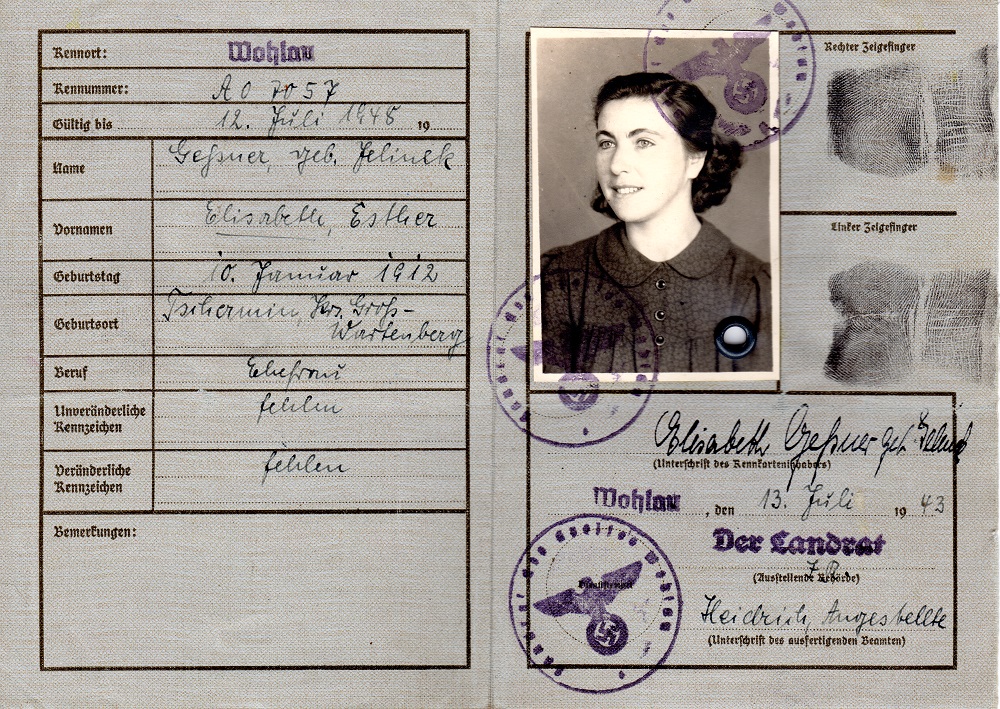 Kennort: Wohlau
Kennummer: A 0 7057
Gültig bis 12. Juli 1948 19
Name Geßner, geb. Jelinek
Vornamen Elisabeth, Esther
Geburtstag 10. Januar 1912
Geburtsort Tschermin, Krs. Groß-
Wartenberg
Beruf Ehefrau
Unveränderliche Kennzeichen fehlen
Veränderliche Kennzeichen fehlen
Bemerkungen:
Rechter Zeigefinger
Linker Zeigefinger
Elisabeth Geßner geb. Jelinek
(Unterschrift des Kennkarteninhabers)
Wohlau, den 13. Juli 1943
Der Landrat
(Ausstellende Behörde)
Heidrich, Angestellte
(Unterschrift des ausfertigenden Beamten)
Dienststempel
Landrat des Kreises Wohlau